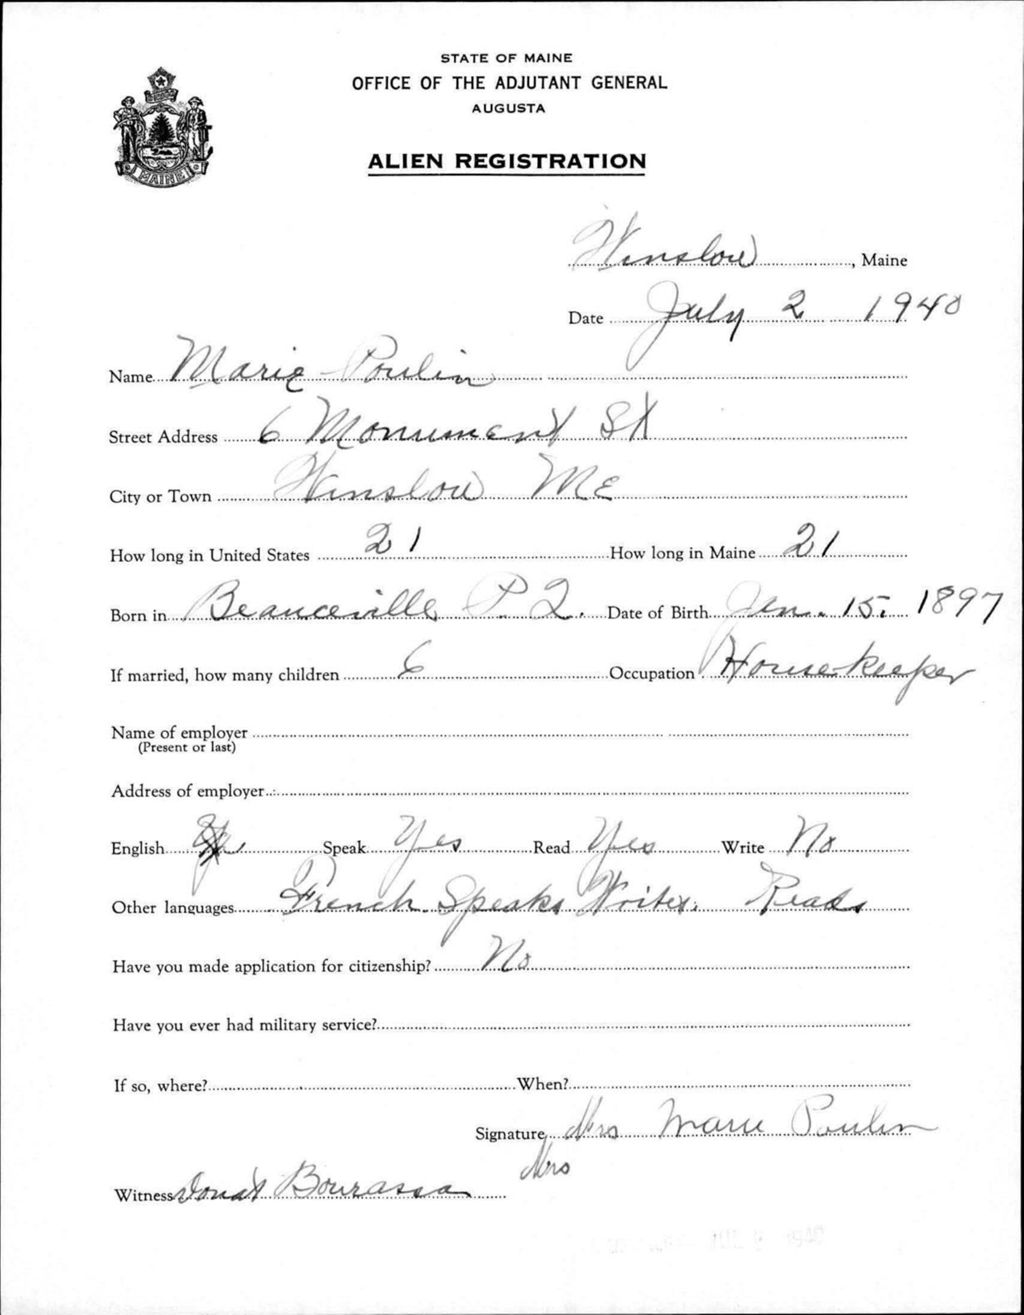 STATE OF MAINE
OFFICE OF THE ADJUTANT GENERAL
AUGUSTA
ALIEN REGISTRATION
MAINE
Winslow, Maine
Date July 2 1940
Name Marie Poulin
Street Address 6 Monument St
City or Town Winslow Me
How long in United States 21 How long in Maine 21
Born in Beauceville P. Q. Date of Birth Jan. 15. 1897
If married, how many children 6 Occupation Housekeeper
Name of employer
(Present or last)
Address of employer
English Speak Yes Read Yes Write No
Other languages French Speaks Writes. Reads
Have you made application for citizenship? No
Have you ever had military service?
If so, where? When?
Signature Mrs Marie Poulin
Mrs
Witness Donat Bourassa